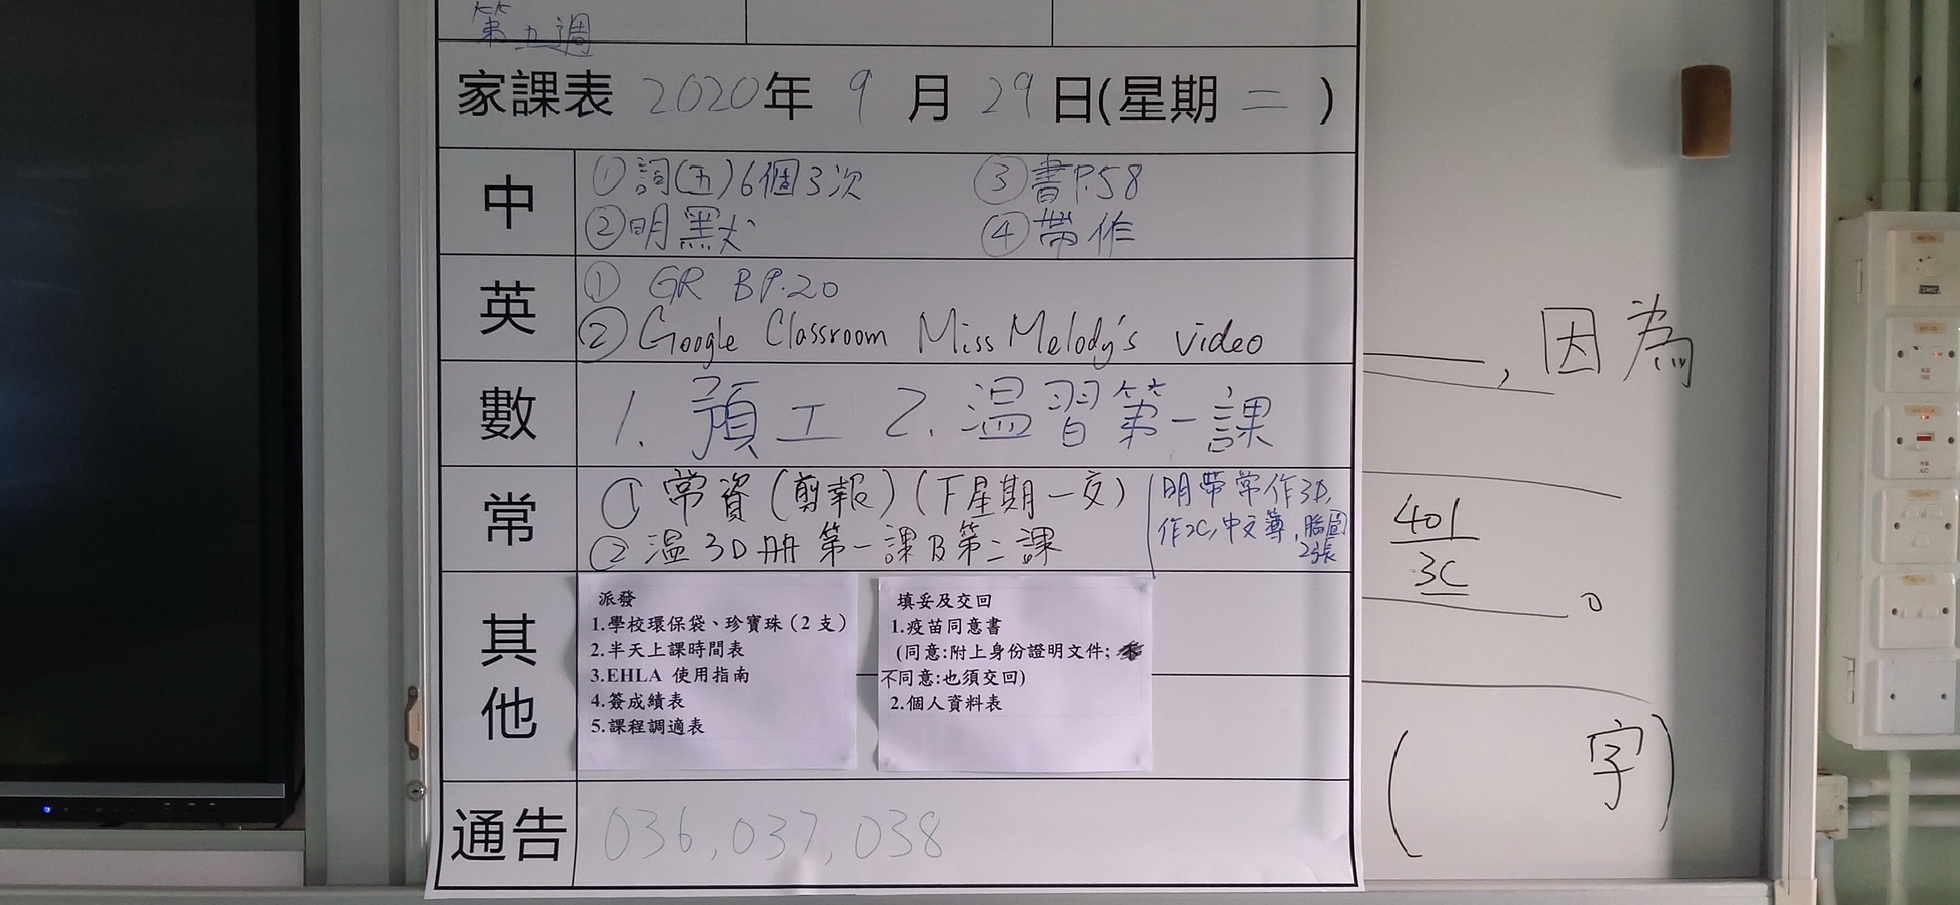 第五週
家課表 2020年 9月 29日(星期二)
中
①詞(五)6個3次
②明默
③書P.58
④帶作
英
① GR BP.20
② Google Classroom Miss Melody's video
數
1. 預工 2. 溫習第一課
常
① 常資(剪報)(下星期一交)
② 溫3D冊 第一課及第二課
明帶常作3D,
作2C,中文簿,腦圖
2張
其他
派發
1.學校環保袋、珍寶珠(2支)
2.半天上課時間表
3.EHLA 使用指南
4.簽成績表
5.課程調適表
填妥及交回
1.疫苗同意書
(同意:附上身份證明文件;
不同意:也須交回)
2.個人資料表
通告
036,037,038
,因為
401
3C
。
( 字)